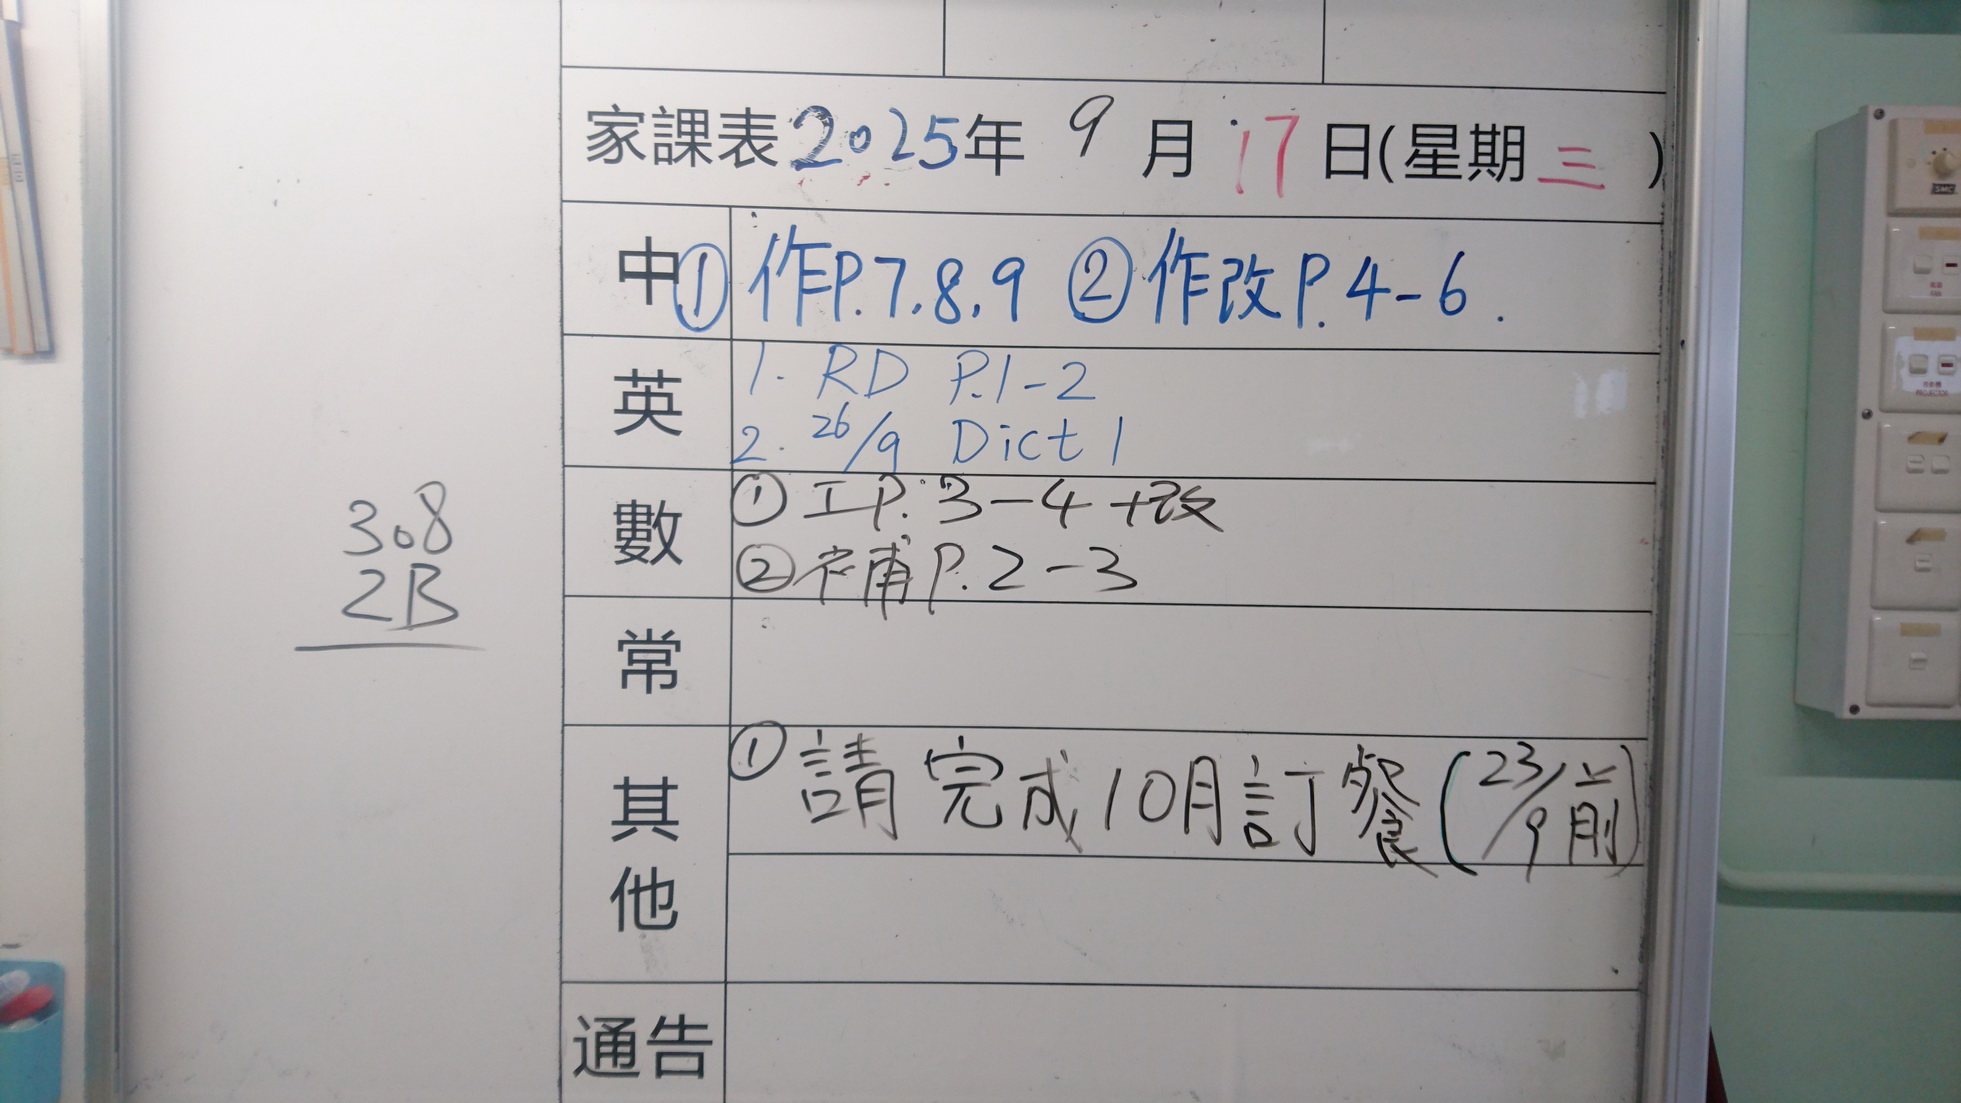 家課表2025年 9 月 17 日(星期三)
中 ① 作P.7,8,9 ② 作改P.4-6.
英 1. RD P.1-2
2. 26/9 Dict 1
數 ① 工P.3-4+改
② 補P.2-3
常
其他 ① 請完成10月訂餐(23/9前)
通告
308
2B